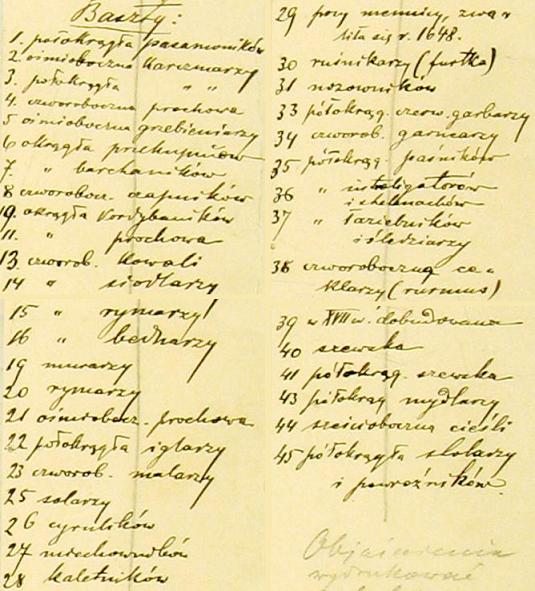 Baszty:
1. połokrągła pasamoników
2. ośmioboczna karczmarzy
3. połokrągła " "
4. czworoboczna prochowa
5 ośmioboczna grzebieniarzy
6 okrągła przekupniów
7. " barchaników
8 czworobocz. czapników
10. okrągła kordybaników
11. " prochowa
13 czworob. kowali
14 " siodlarzy
15 " rymarzy
16 " bednarzy
19 murarzy
20 rymarzy
21 ośmiobocz. prochowa
22 połokrągła iglarzy
23 czworob. malarzy
25 solarzy
26 cyrulików
27 miechowników
28 kaletników
29 przy mennicy, zwa=
liła się r. 1648.
30 ruśnikarzy (furtka)
31 nożowników
33 półokrąg. czerw. garbarzy
34 czworob. garncarzy
35 półokrąg. paśników
36 " introligatorów
i szelmachów
37 " łaziebników
i śledziarzy
38 czworoboczna ce=
klarzy (rurmus)
39 w XVII w. dobudowana
40 szewska
41 półokrąg. szewska
43 półokrąg mydlarzy
44 sześcioboczna cieśli
45 półokrągła stolarzy
i powroźników.
Objaśnienia
wydrukować